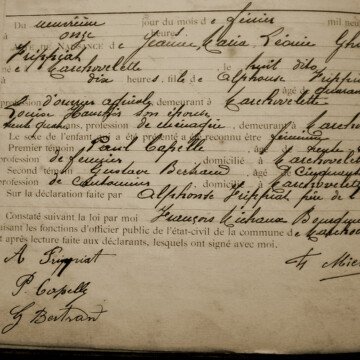 Du neuvième jour du mois de février mil neuf
onze heures
ACTE DE NAISSANCE de Jeanne Maria Léonie Ghis
Frippiat
né à Marchovelette le huit dito
dix heures, fille de Alphonse Frippiat
âgé de quarante
profession d'ouvrier agricole, demeurant à Marchovelette
Louise son épouse
profession de ménagère, demeurant à Marchov
Le sexe de l'enfant a été présenté et reconnu être féminin
Premier témoin : Paul Capelle âgé de
profession de fermier, domicilié à Marchovelette
Second témoin : Gustave Bertrand, âgé de cinquante
profession de cantonnier, domicilié à Marchovelette
Sur la déclaration faite par Alphonse Frippiat, père de l'
Constaté suivant la loi par moi François Michaux Bourgm
faisant les fonctions d'officier public de l'état-civil de la commune de Marchov
et après lecture faite aux déclarants, lesquels ont signé avec moi.
A Frippiat
P Capelle
G Bertrand